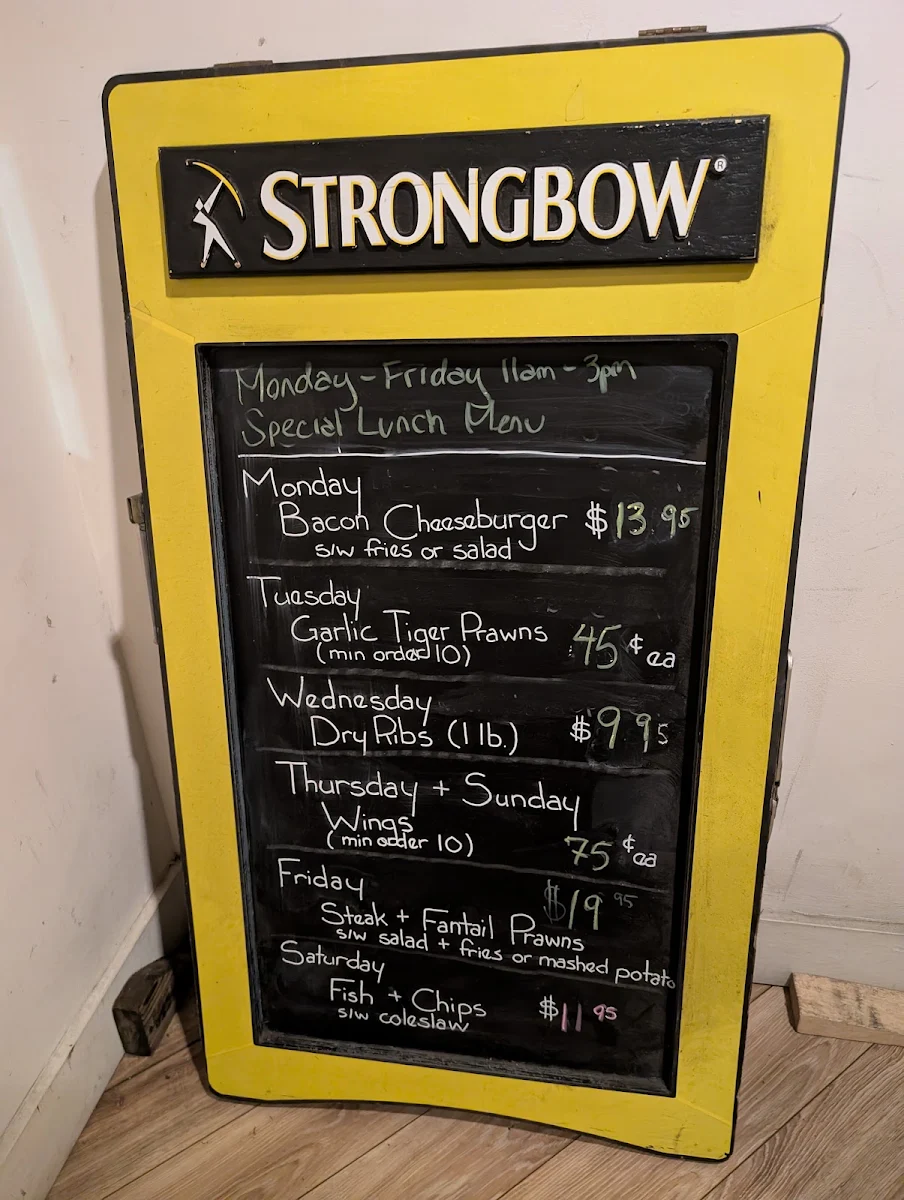 STRONGBOW®
Monday - Friday 11am - 3pm
Special Lunch Menu
Monday
Bacon Cheeseburger $13.95
s/w fries or salad
Tuesday
Garlic Tiger Prawns 45¢ ea
(min order 10)
Wednesday
Dry Ribs (1 lb.) $9 95
Thursday + Sunday
Wings
(min order 10) 75¢ ea
Friday $19 95
Steak + Fantail Prawns
s/w salad + fries or mashed potato
Saturday
Fish + Chips $11 95
s/w coleslaw